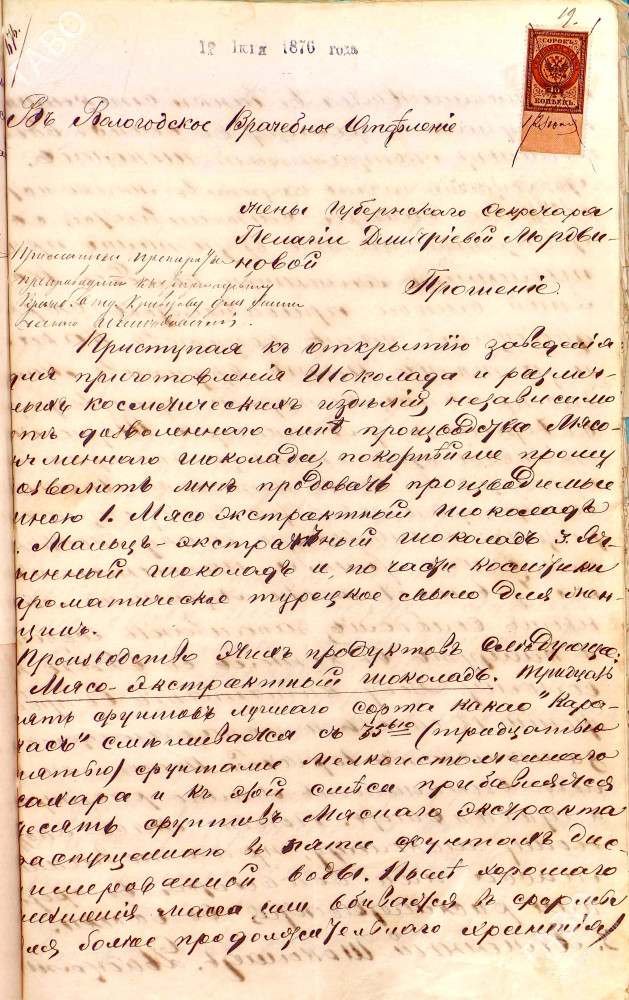 12 Іюля 1876 года
19.
СОРОКЪ
40
КОПѢЕКЪ
Въ Вологодское Врачебное Отдѣленіе
жены Губернскаго Секретаря
Пелагіи Дмитріевой Людви-
новой
Прошеніе.
Приступая къ открытію заведенія
для приготовленія Шоколада и различ-
ныхъ косметическихъ издѣлій, независимо
отъ дозволеннаго мнѣ производства Мясо-
ячменнаго шоколада, покорнѣйше прошу
дозволить мнѣ продавать производимые
мною 1. Мясо экстрактный шоколадъ
. Мальцъ-экстрактный шоколадъ 3. Яч-
менный шоколадъ и, по части косметики
ароматическое турецкое мыло для жен-
щинъ.
Производство этихъ продуктовъ слѣдующее:
Мясо-экстрактный шоколадъ. Тридцать
пять фунтовъ лучшаго сорта какао "Кара-
касъ" смѣшивается съ 35ью (тридцатью
пятью) фунтами мелкоистолченнаго
сахара и къ этой смѣси прибавляется
десять фунтовъ Мяснаго экстракта
распущеннаго въ пяти фунтахъ дис-
тилированной воды. Послѣ хорошаго
смѣшенія масса, или вбивается въ формы
для болѣе продолжительнаго храненія,